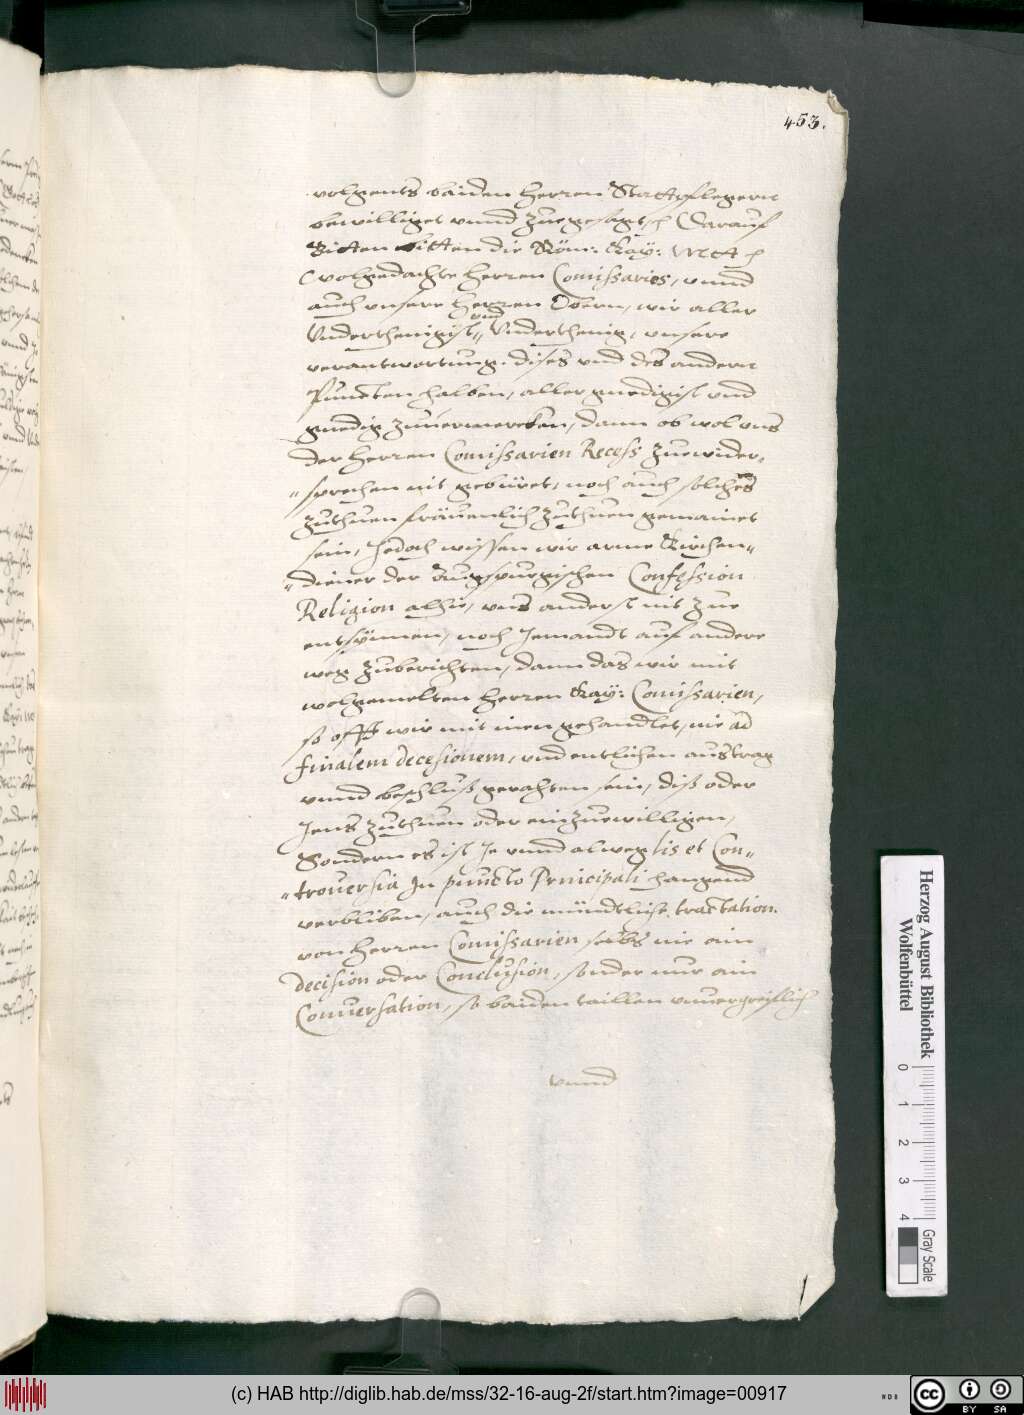 453.
volgents baiden herren Stattpflegern
bewilliget unnd zuegesagt, Darauf
Bitten bitten die Röm: Kay: Mtt
wolgedachte herren Comissaries, unnd
auch unsere herren Obern, wir aller
Underthenigist, und Underthenig, unsere
verantwortung dises und des andern
Puncten halben, aller gnedigist und
gnedig zuvermercken, dann ob wol uns
der herren Comissarien Recess zuewider,,
,,sprechen nit gebüret, noch auch solches
zuthuen fräuenlich zuthuen gemainet
sein, Jedoch wissen wir arme Kirchen,,
,,diener der Augspurgischen Confession
Religion alhie, uns anderst nit zue
entsynnen, noch Jemandt auf andere
weg zuberichten, dann das wir mit
wolgemelten herren Kay: Comissarien,
so offt wir mit inen gehandlet, nie ad
finalem decesionem, und entlichen austrag
unnd beschluß gerahten sein, diß oder
Jens zuthuen oder einzuewilligen,
Sondern es ist Je unnd alweg lis et Con,,
,,troversia In puncto Principali hangend
verbliben, auch die mündtliche tractation.
von herren Comissarien selbs nie ain
decision oder Conclusion, sonder nur ain
Conversation, so baiden taillen unvergreiflich
unnd
Herzog August Bibliothek
Wolfenbüttel
0 1 2 3 4
Gray Scale
(c) HAB http://diglib.hab.de/mss/32-16-aug-2f/start.htm?image=00917
WDB
cc BY SA